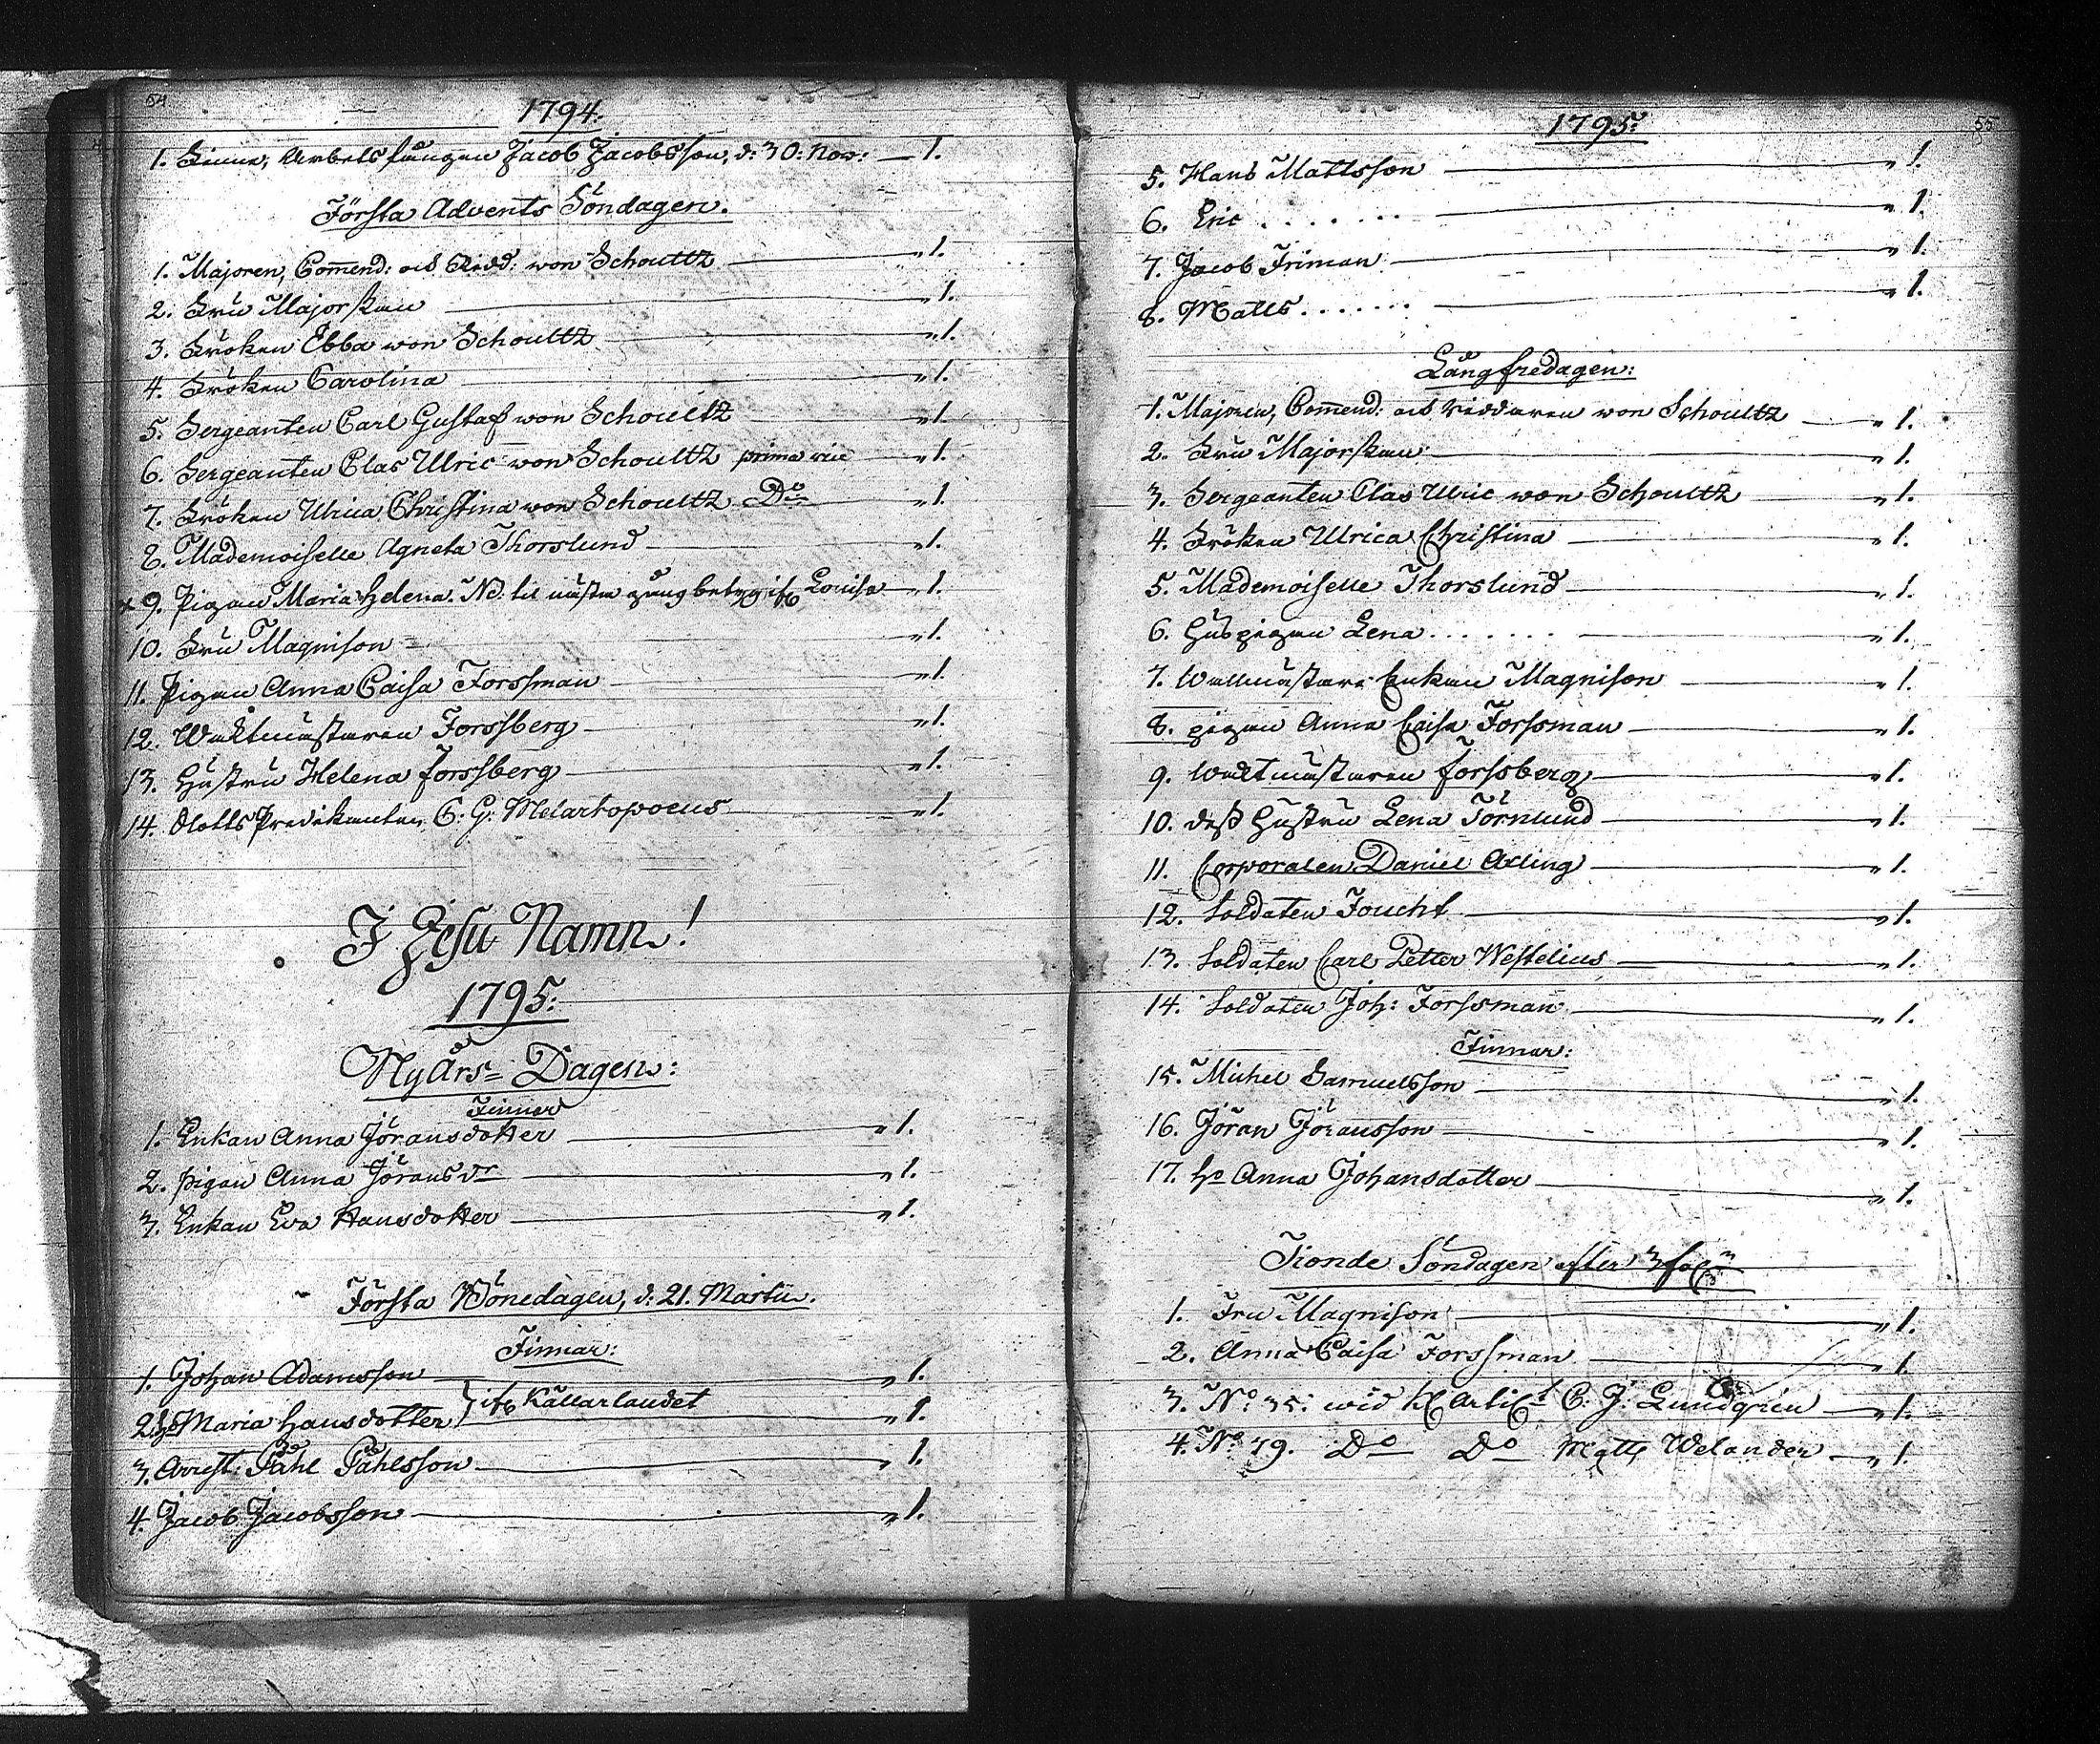 54
1794.
1. Finne, Arbetsfången Jacob Jacobsson, d: 30: Nov: — 1.
Första Advents Söndagen.
1. Majoren, Com̄end: och Ridd: von Schoultz — „1.
2. Fru Majorskan — „1.
3. Fröken Ebba von Schoultz — „1.
4. Fröken Carolina — „1.
5. Sergeanten Carl Gustaf von Schoultz — „1.
6. Sergeanten Clas Ulric von Schoultz prima vice — „1.
7. Fröken Ulrica Christina von Schoultz Do — „1.
8. Mademoiselle Agneta Thorslund — „1.
x 9. Pigan Maria Helena. NB. til nästa gång betyg ifr Lovisa — „1.
10. Fru Magnison — „1.
11. Pigan Anna Caisa Forssman — „1.
12. Waktmästaren Forssberg — „1.
13. Hustru Helena Forssberg — „1.
14. Slotts Predikanten C: G: Melartopoeus — „1.
I Jesu Namn!
1795:
NyÅrs=Dagen:
Finnar
1. Enkan Anna Jöransdotter — „1.
2. pigan Anna Jöransdr — „1.
3. Enkan Eva Hansdotter — „1.
Första Bönedagen, d: 21. Martii.
Finnar:
1. Johan Adamsson — „1.
2. h. Maria Hansdotter } ifr Källarlandet — „1.
3. Arrest: Påhl Påhlsson — „1.
4. Jacob Jacobsson — „1.
55
1795:
5. Hans Mattsson — „1.
6. Eric . . . . . . . — „1.
7. Jacob Friman — „1.
8. Matts . . . . . . — „1.
Långfredagen:
1. Majoren, Com̄end: och Riddaren von Schoultz — „1.
2. Fru Majorskan — „1.
3. Sergeanten Clas Ulric von Schoultz — „1.
4. Fröken Ulrica Christina — „1.
5. Mademoiselle Thorslund — „1.
6. Huspigan Lena . . . . . . . — „1.
7. Wallmästare Enkan Magnison — „1.
8. pigan Anna Caisa Forssman — „1.
9. Waktmästaren Forssberg — „1.
10. dess Hustru Lena Törnlund — „1.
11. Corporalen Daniel Axling — „1.
12. Soldaten Foucht — „1.
13. Soldaten Carl Petter Westelius — „1.
14. Soldaten Joh: Forssman — „1.
Finnar:
15. Michel Samuelsson — „1.
16. Jöran Jöransson — „1.
17. h. Anna Johansdotter — „1.
Tionde Söndagen efter 3fal:
1. Fru Magnison — „1.
2. Anna Caisa Forssman — „1.
3. No 35: wid Kl Artict C. J: Lundgrén — „1.
4. No 79. Do Do Matts Welander — „1.